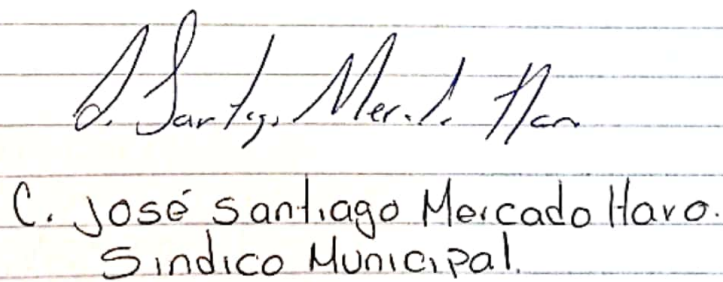 J. Santiago Mercado Haro
C. José Santiago Mercado Haro.
Sindico Municipal.